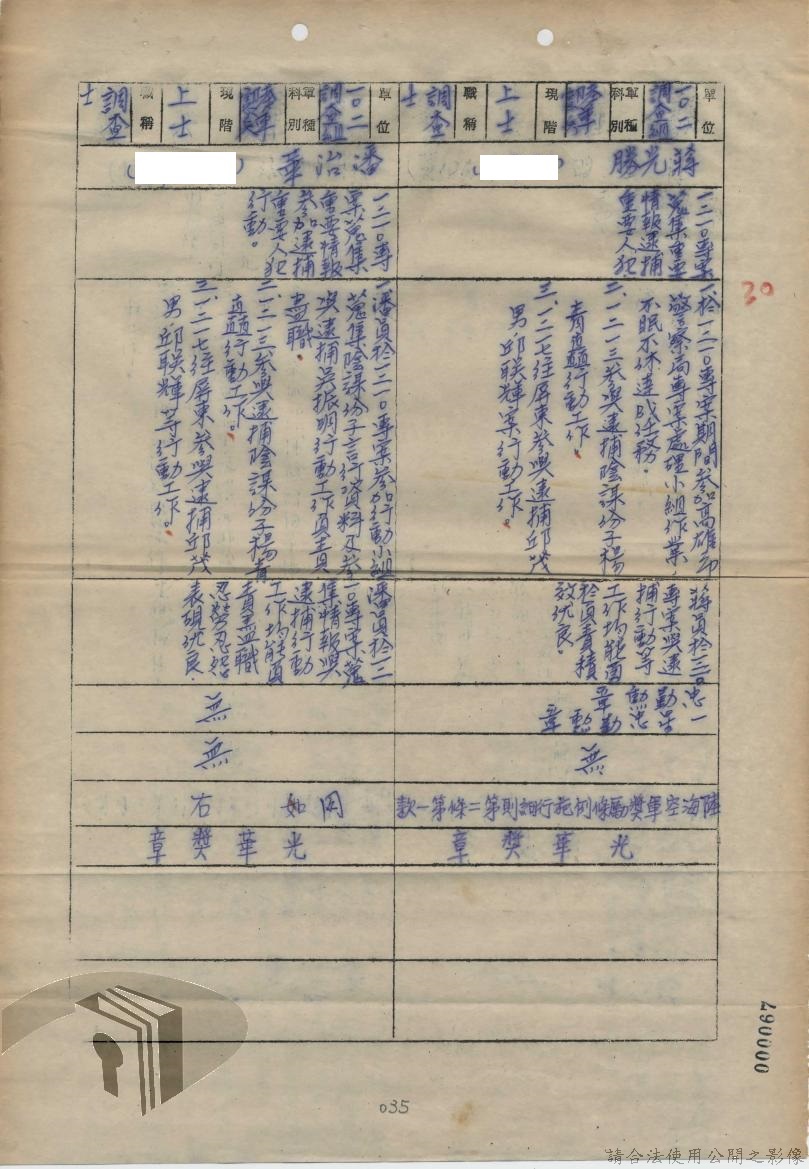 單位
一〇二
調查組
軍種
科別
陸軍
現階
上士
職稱
調查
士
蔣光勝
一二一〇專案
蒐集重要
情報逮捕
重要人犯
一、於一二一〇專案期間參加高雄市
警察局專案處理小組作業
不眠不休達成任務。
二、一二一三參與逮捕陰謀份子楊
青矗行動工作。
三、一二一七往屏東參與逮捕邱茂
男邱聯輝案行動工作。
蔣員於一二一〇
專案與逮
捕行動等
工作均能
負責積
效优良
忠勤勳章
一星忠勤勳章
無
陸海空軍獎勵條例施行細則第二條第一款
光華獎章
單位
一〇二
調查組
軍種
科別
陸軍
現階
上士
職稱
調查
士
潘治華
一二一〇專
案蒐集
重要情報
參加逮捕
重要人犯
行動。
一、潘員於一二一〇專案參加行動小組
蒐集陰謀份子言行資料及參
與逮捕吳振明行動工作負責
盡職。
二、一二一三參與逮捕陰謀份子楊青
矗行動工作。
三、一二一七往屏東參與逮捕邱茂
男邱聯輝等行動工作。
潘員於一二
一〇專案蒐
集情報與
逮捕行動
工作均能負
責盡職
忍勞忍怨
表現优良。
無
無
同如右
光華獎章
30
000067
035
請合法使用公開之影像